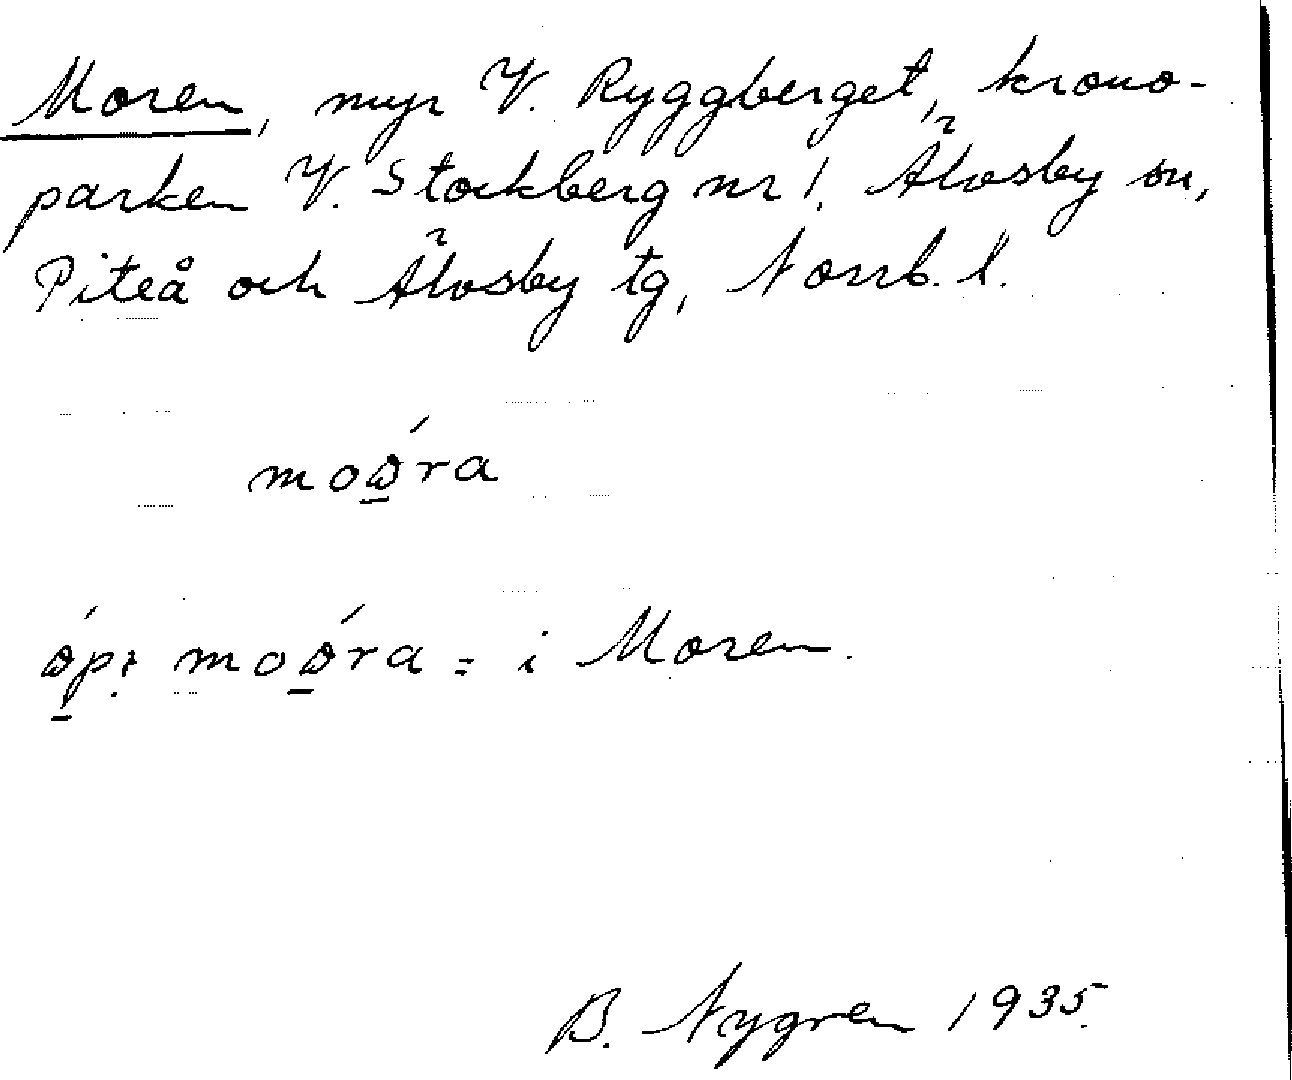 Moren, myr V. Ryggberget, krono-
parken V. Stockberg nr 1. Älvsby sn,
Piteå och Älvsby tg, Norrb. l.
i Moren.
B. Nygren 1935.